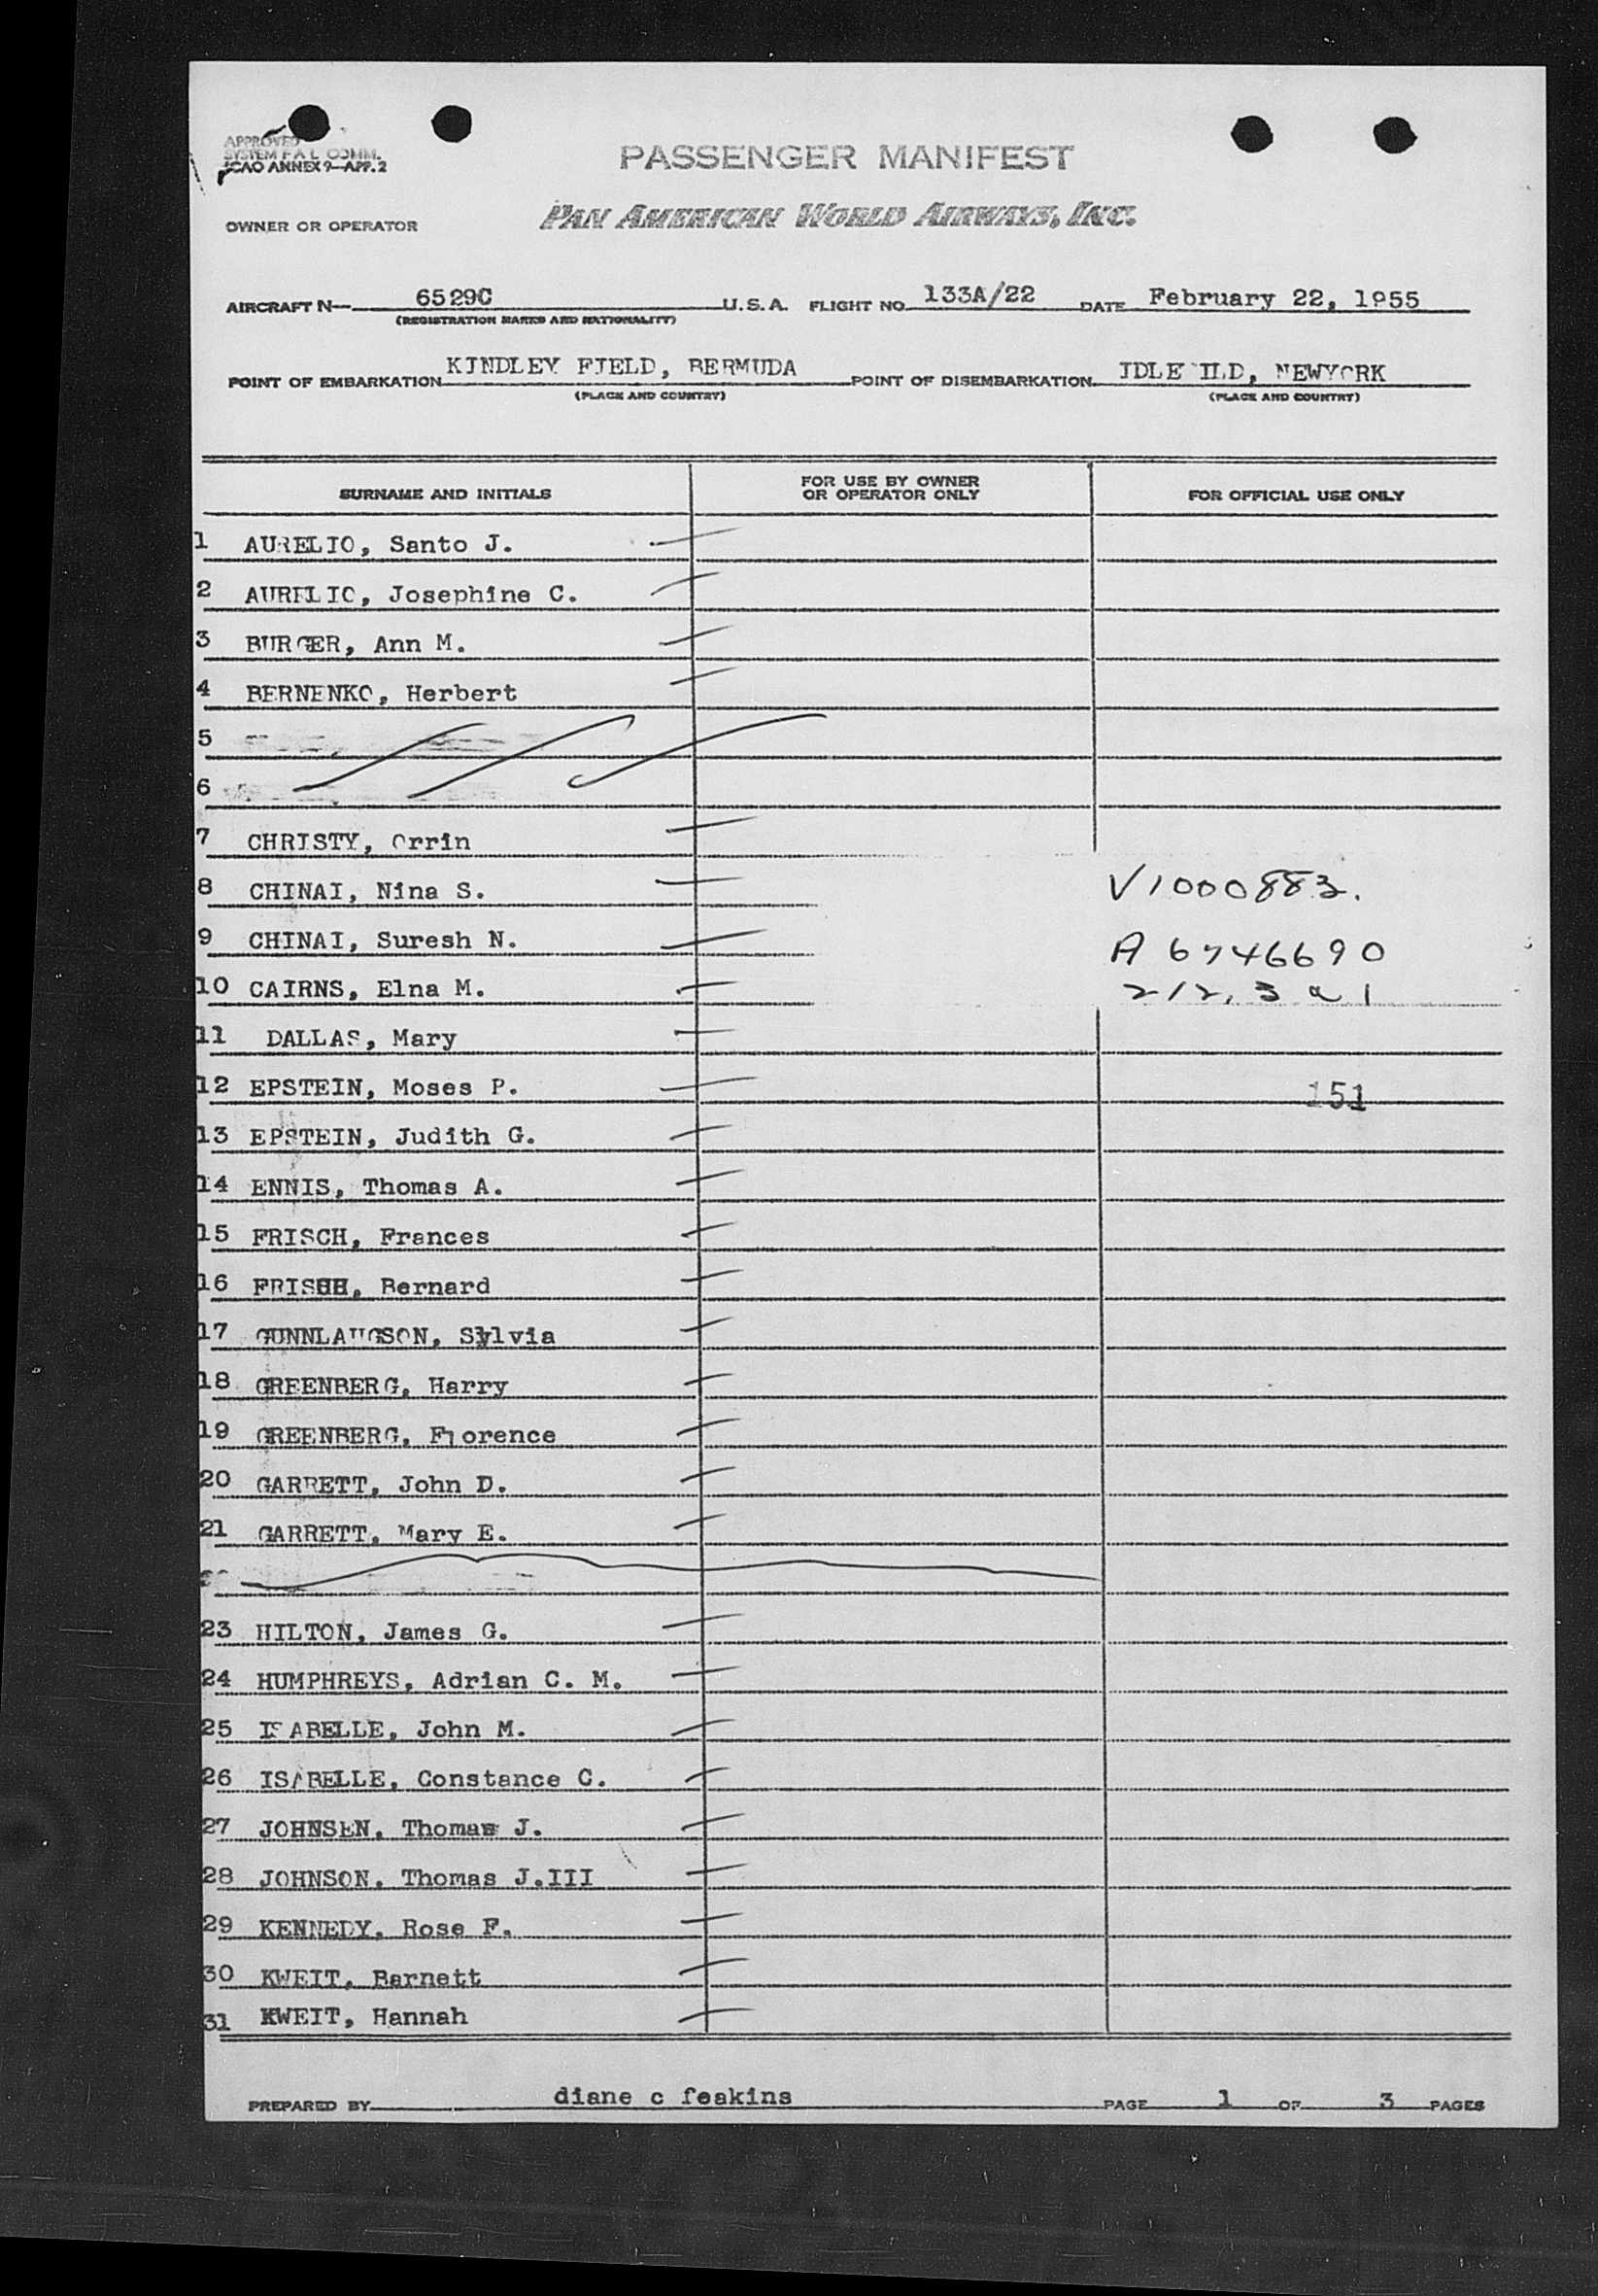 APPROVED
SYSTEM F A L COMM.
ICAO ANNEX 9-APP. 2
PASSENGER MANIFEST
OWNER OR OPERATOR PAN AMERICAN WORLD AIRWAYS, INC.
AIRCRAFT N- 6529C U.S.A. FLIGHT NO. 133A/22 DATE February 22, 1955
(REGISTRATION MARKS AND NATIONALITY)
POINT OF EMBARKATION KINDLEY FIELD, BERMUDA POINT OF DISEMBARKATION IDLE ILD, NEWYORK
(PLACE AND COUNTRY) (PLACE AND COUNTRY)
SURNAME AND INITIALS FOR USE BY OWNER OR OPERATOR ONLY FOR OFFICIAL USE ONLY
1 AURELIO, Santo J.
2 AURELIO, Josephine C.
3 BURGER, Ann M.
4 BERNENKO, Herbert
5
6
7 CHRISTY, Orrin
8 CHINAI, Nina S. V1000883.
9 CHINAI, Suresh N. A 6746690
10 CAIRNS, Elna M. 212.3 a 1
11 DALLAS, Mary
12 EPSTEIN, Moses P. 151
13 EPSTEIN, Judith G.
14 ENNIS, Thomas A.
15 FRISCH, Frances
16 FRISCH, Bernard
17 GUNNLAUGSON, Sylvia
18 GREENBERG, Harry
19 GREENBERG, Florence
20 GARRETT, John D.
21 GARRETT, Mary E.
23 HILTON, James G.
24 HUMPHREYS, Adrian C. M.
25 ISABELLE, John M.
26 ISABELLE, Constance C.
27 JOHNSEN, Thomas J.
28 JOHNSON, Thomas J.III
29 KENNEDY, Rose F.
30 KWEIT, Barnett
31 KWEIT, Hannah
PREPARED BY diane c feakins PAGE 1 OF 3 PAGES